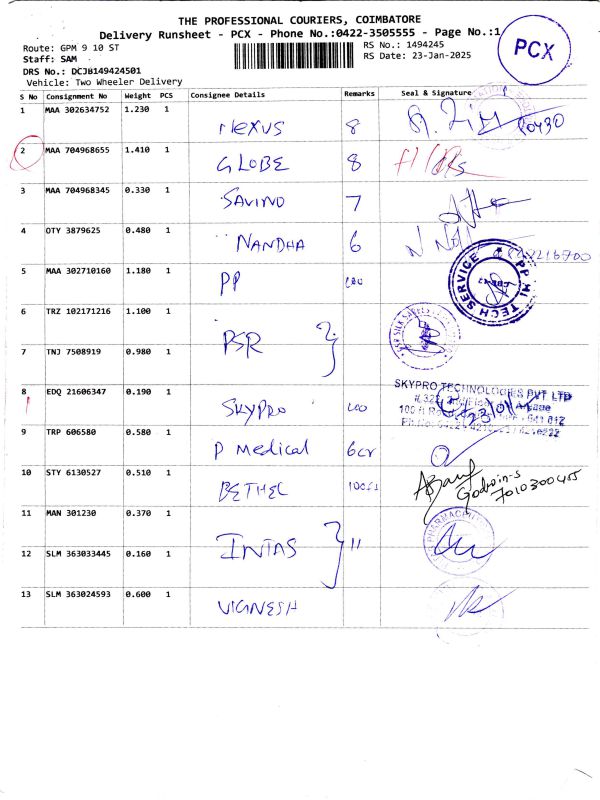 THE PROFESSIONAL COURIERS, COIMBATORE
Delivery Runsheet - PCX - Phone No.:0422-3505555 - Page No.:1
PCX
Route: GPM 9 10 ST
Staff: SAM
DRS No.: DCJB149424501
Vehicle: Two Wheeler Delivery
RS No.: 1494245
RS Date: 23-Jan-2025
S No Consignment No Weight PCS Consignee Details Remarks Seal & Signature
1 MAA 302634752 1.230 1 NEXUS 8
2 MAA 704968655 1.410 1 GLOBE 8
3 MAA 704968345 0.330 1 SAVINO 7
4 OTY 3879625 0.480 1 NANDHA 6
5 MAA 302710160 1.180 1 PP
PP HI TECH SERVICE
6 TRZ 102171216 1.100 1 PSR
7 TNJ 7508919 0.980 1
8 EDQ 21606347 0.190 1 SKYPRO
SKYPRO TECHNOLOGIES PVT LTD
9 TRP 606580 0.580 1 P Medical
10 STY 6130527 0.510 1 BETHEL
Godwin-S
7010300455
11 MAN 301230 0.370 1 INTAS 11
12 SLM 363033445 0.160 1
13 SLM 363024593 0.600 1 VIGNESH